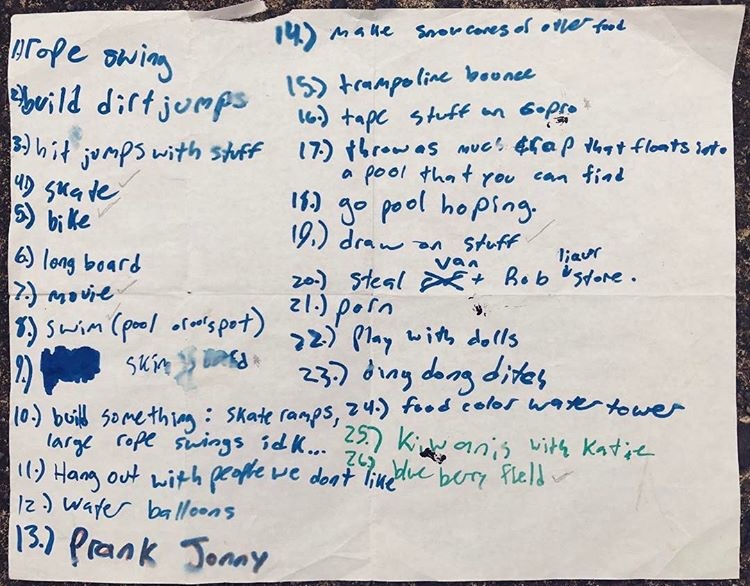 1.) rope swing
2.) build dirt jumps
3.) hit jumps with stuff
4.) skate ✓
5.) bike ✓
6.) long board
7.) movie ✓
8.) swim (pool or our spot)
9.) skim
10.) build something: skate ramps,
large rope swings idk...
11.) Hang out with people we dont like
12.) water balloons
13.) Prank Jonny
14.) make snowcones or other food
15.) trampoline bounce
16.) tape stuff on Gopro
17.) throw as much crap that floats into
a pool that you can find
18.) go pool hoping.
19.) draw on stuff ✓
20.) steal van + Rob liqur store.
21.) porn
22.) Play with dolls
23.) ding dong ditch
24.) food color water tower
25.) Kiwanis with Katie
26.) blue berry field ✓